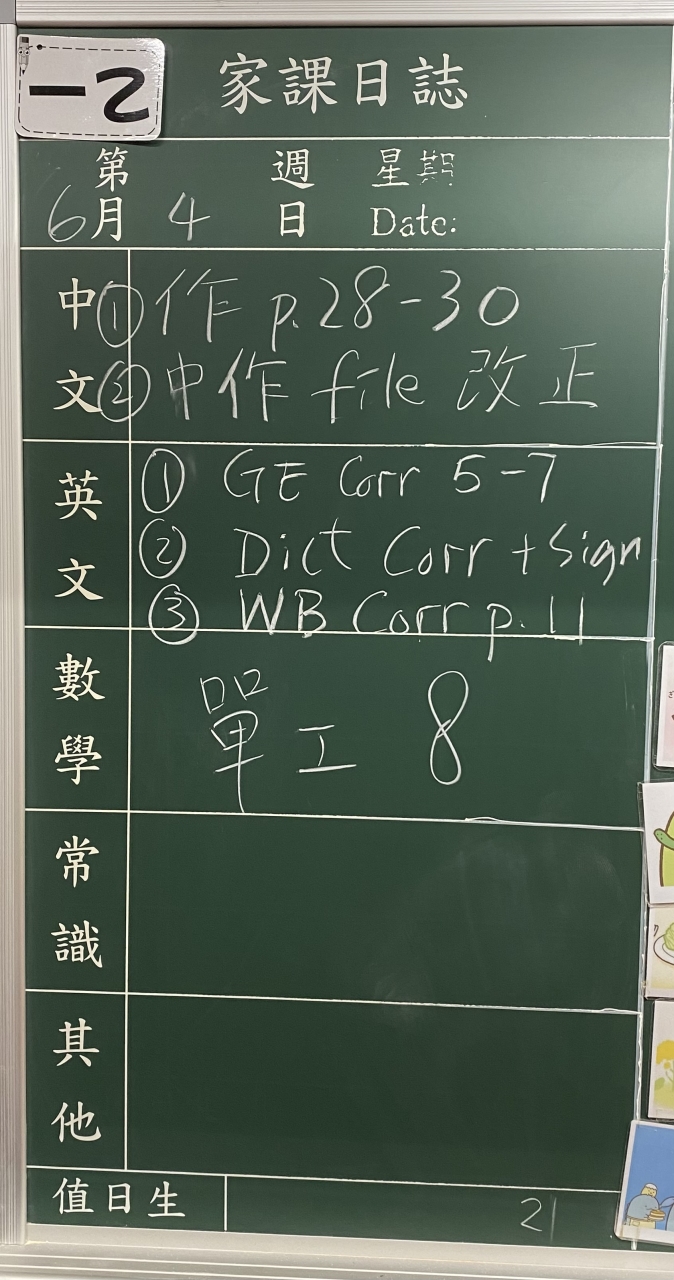 家課日誌
第 週 星期
6月 4 日 Date:
中文
① 作 p.28-30
② 中作 file 改正
英文
① GE Corr 5-7
② Dict Corr + Sign
③ WB Corr p.11
數學
單工 8
常識
其他
值日生 21